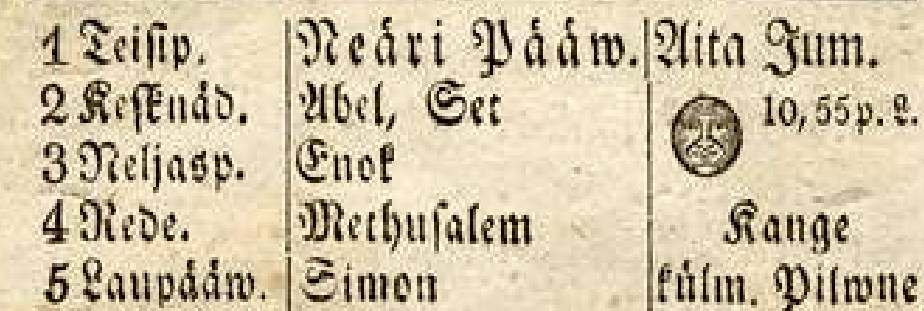 1 Teisip. Neäri Pääw. Aita Jum.
2 Kesknäd. Abel, Set 10, 55 p. L.
3 Neljasp. Enok
4 Rede. Methusalem Kange
5 Laupääw. Simon külm. Pilwne